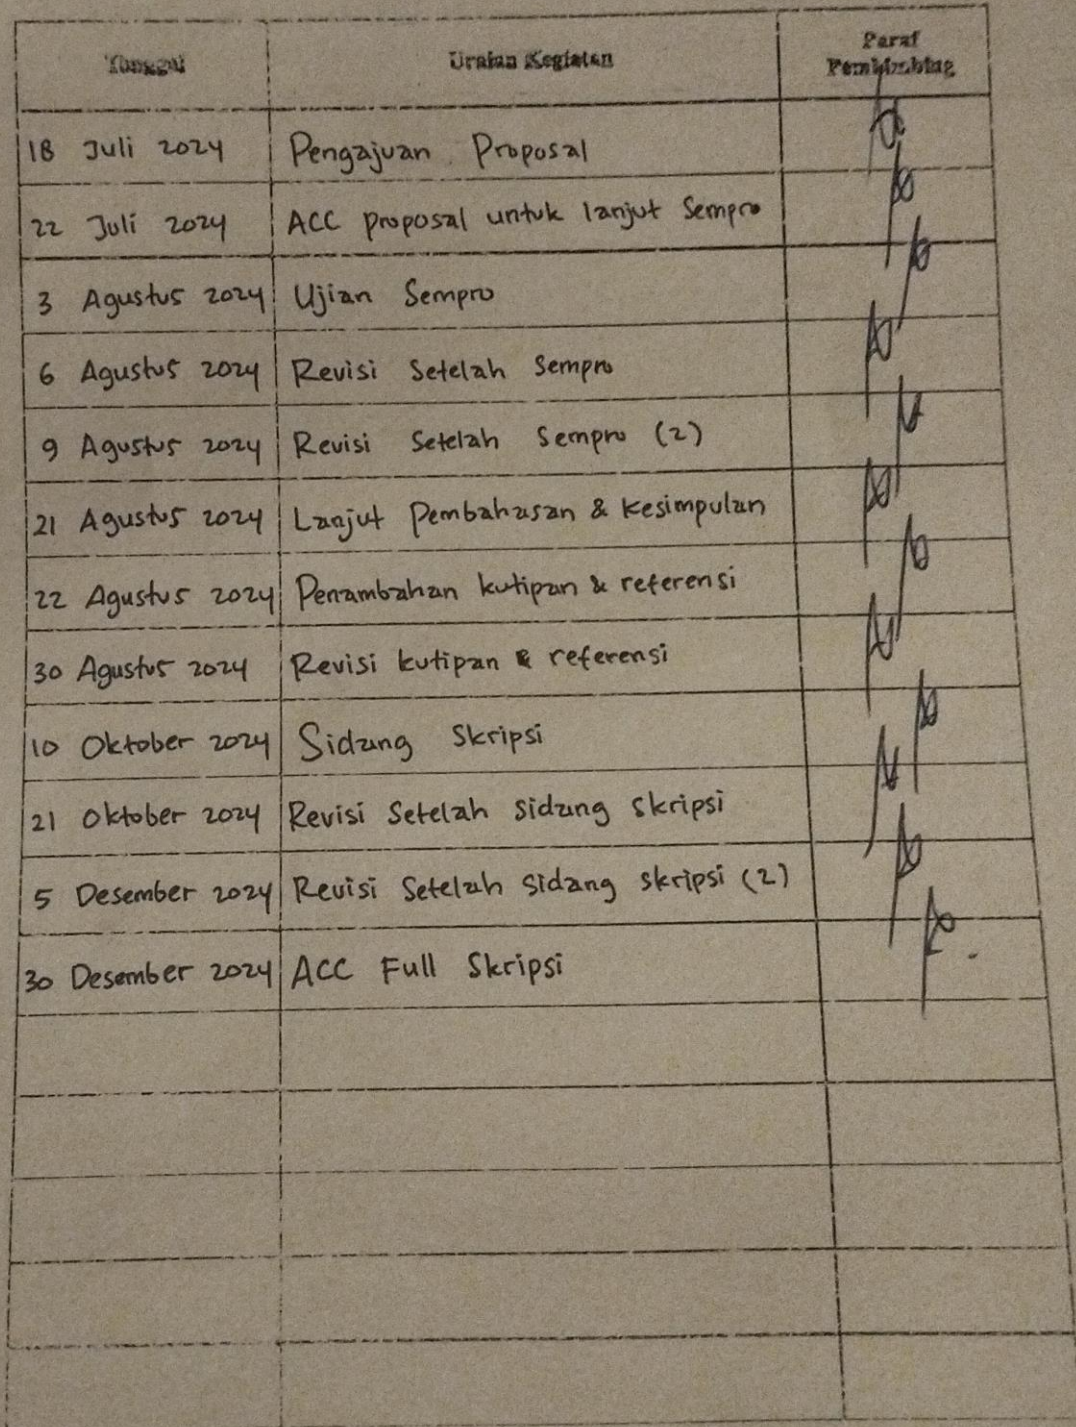 Tanggal Uraian Kegiatan Paraf
Pembimbing
18 Juli 2024 Pengajuan Proposal
22 Juli 2024 ACC proposal untuk lanjut Sempro
3 Agustus 2024 Ujian Sempro
6 Agustus 2024 Revisi Setelah Sempro
9 Agustus 2024 Revisi Setelah Sempro (2)
21 Agustus 2024 Lanjut Pembahasan & Kesimpulan
22 Agustus 2024 Penambahan kutipan & referensi
30 Agustus 2024 Revisi kutipan & referensi
10 Oktober 2024 Sidang Skripsi
21 Oktober 2024 Revisi Setelah Sidang Skripsi
5 Desember 2024 Revisi Setelah Sidang Skripsi (2)
30 Desember 2024 ACC Full Skripsi